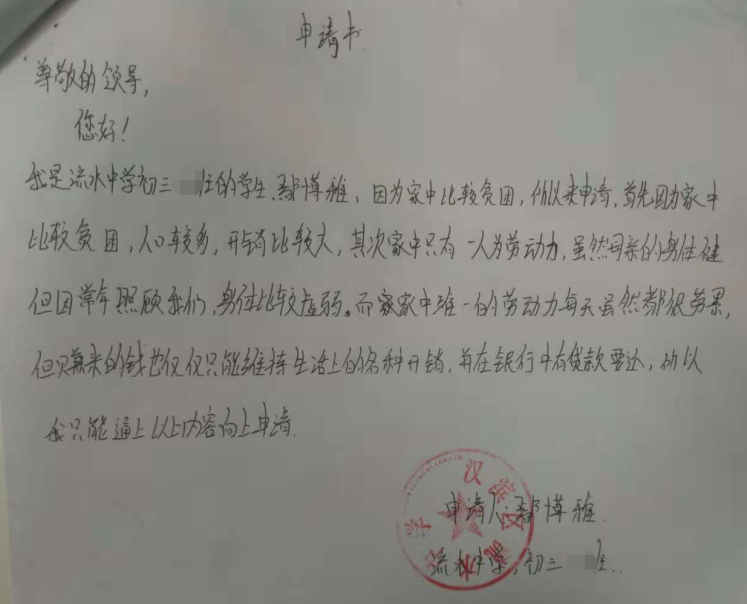 申请书
尊敬的领导，
您好！
我是流水中学初三 班的学生鄢博雅，因为家中比较贫困，所以来申请，首先因为家中
比较贫困，人口较多，开销比较大，其次家中只有一人为劳动力，虽然母亲的身体健
但因常年照顾我们，身体比较虚弱。而家中唯一的劳动力每天虽然都很劳累，
但只赚来的钱也仅仅只能维持生活上的各种开销，并在银行中有贷款要还，所以
我只能通上以上内容向上申请.
申请人：鄢博雅
流水中学，初三 班.
汉滨区流水 中学